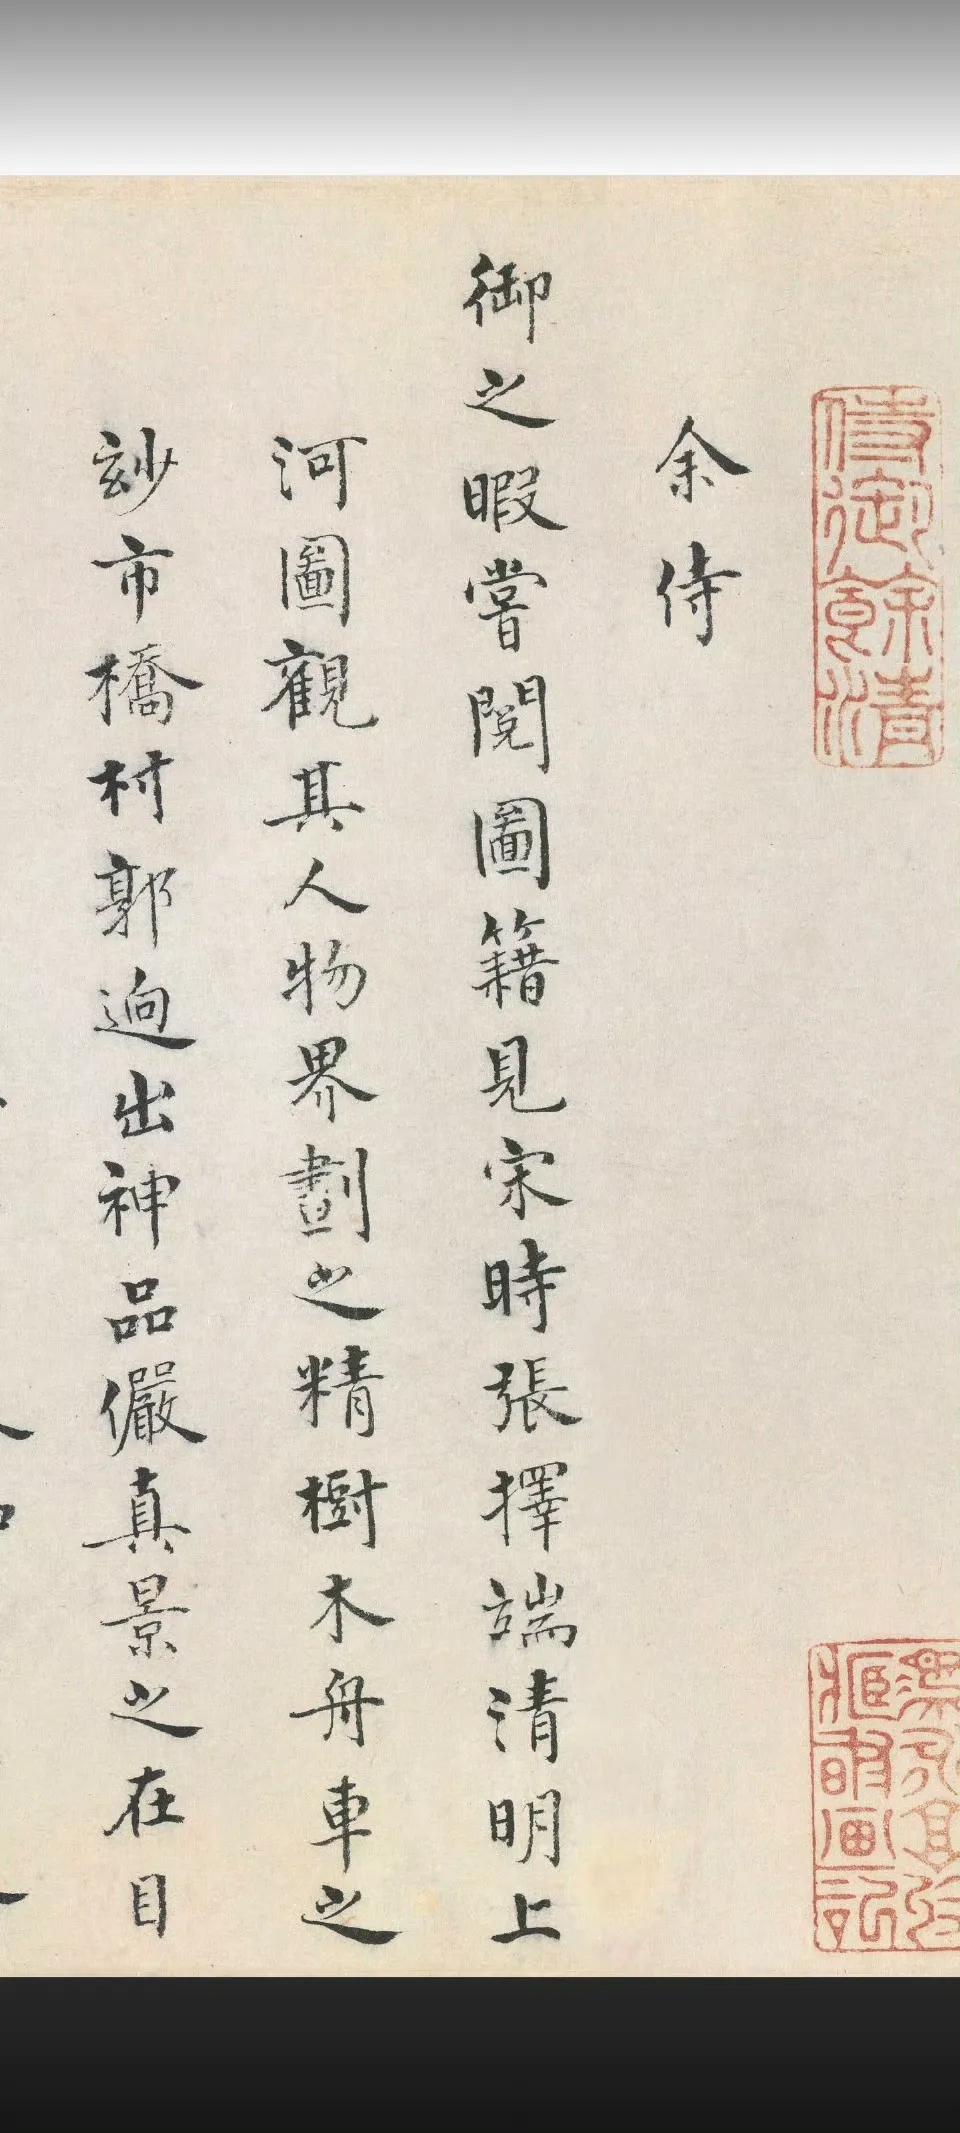 侍御餘清
余侍
御之暇嘗閱圖籍見宋時張擇端清明上
河圖觀其人物界劃之精樹木舟車之
玅市橋村郭逈出神品儼真景之在目